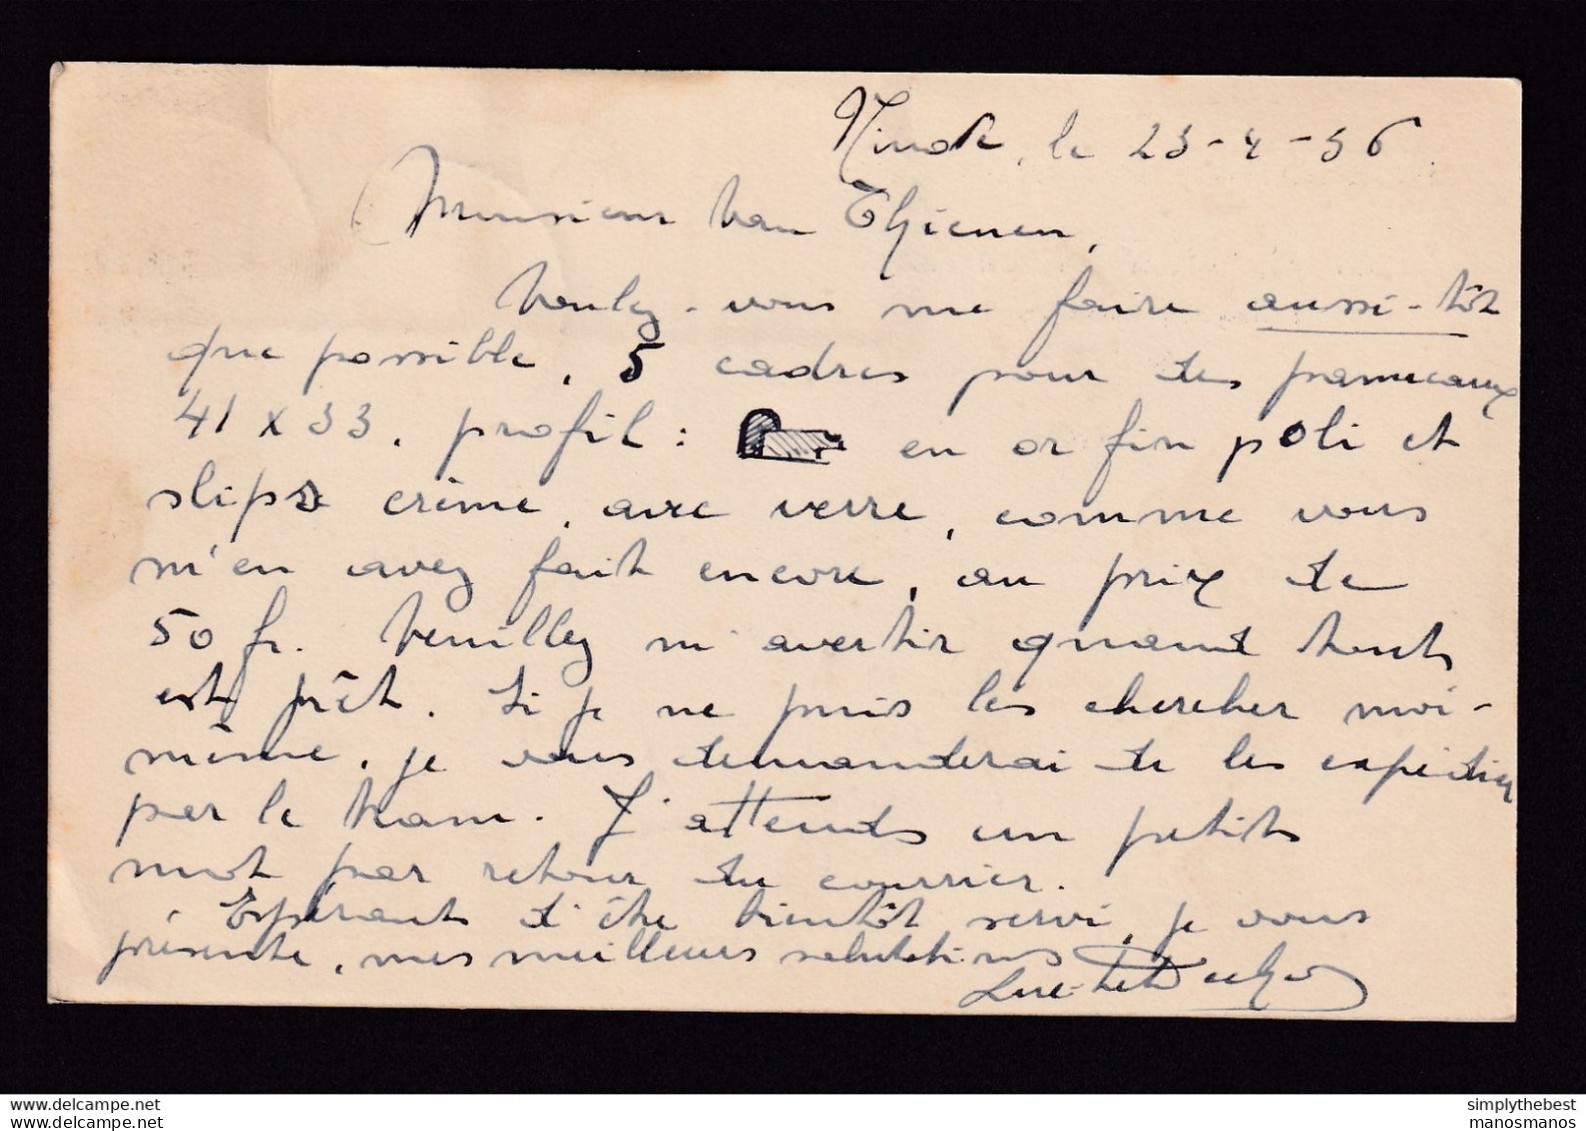 Ninove, le 23-4-36.
Monsieur Van Thienen,
Voulez-vous me faire aussi-tôt
que possible, 5 cadres pour des panneaux
41 x 33. profil : en or fin poli et
slips crème, avec verre, comme vous
m'en avez fait encore, au prix de
50 fr. Veuillez m'avertir quand tout
est prêt. Si je ne puis les chercher moi-
même, je vous demanderai de les expédier
par le tram. J'attends un petit
mot par retour du courrier.
Espérant d'être bientôt servi, je vous
présente, mes meilleurs salutations
simplythebest
www.delcampe.net
manosmanos